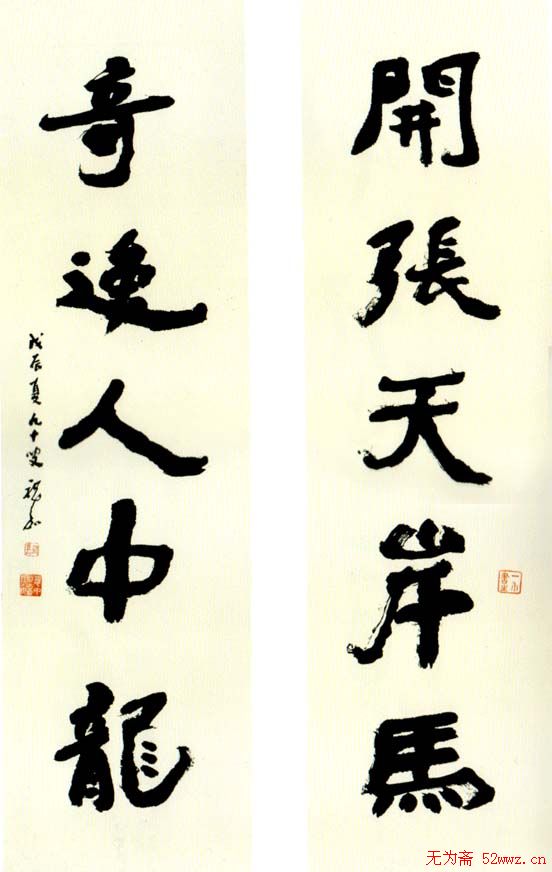 開張天岸馬
奇逸人中龍
戊辰夏九十叟
无为斋 52wwz.cn